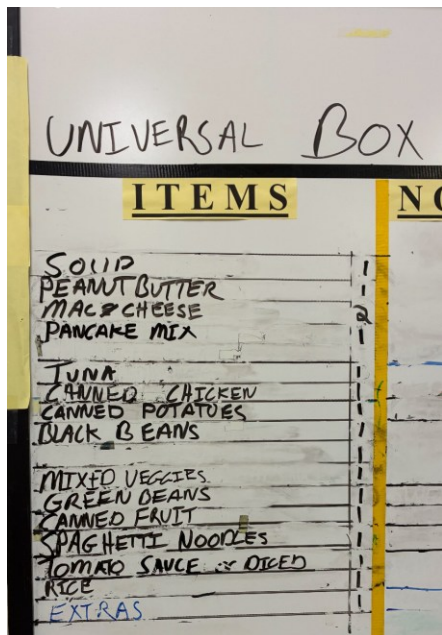 UNIVERSAL BOX
ITEMS NO
SOUP 1
PEANUT BUTTER 1
MAC & CHEESE 2
PANCAKE MIX 1
TUNA 1
CANNED CHICKEN 1
CANNED POTATOES 1
BLACK BEANS 1
MIXED VEGGIES 1
GREEN BEANS 1
CANNED FRUIT 1
SPAGHETTI NOODLES 1
TOMATO SAUCE or DICED 1
RICE 1
EXTRAS